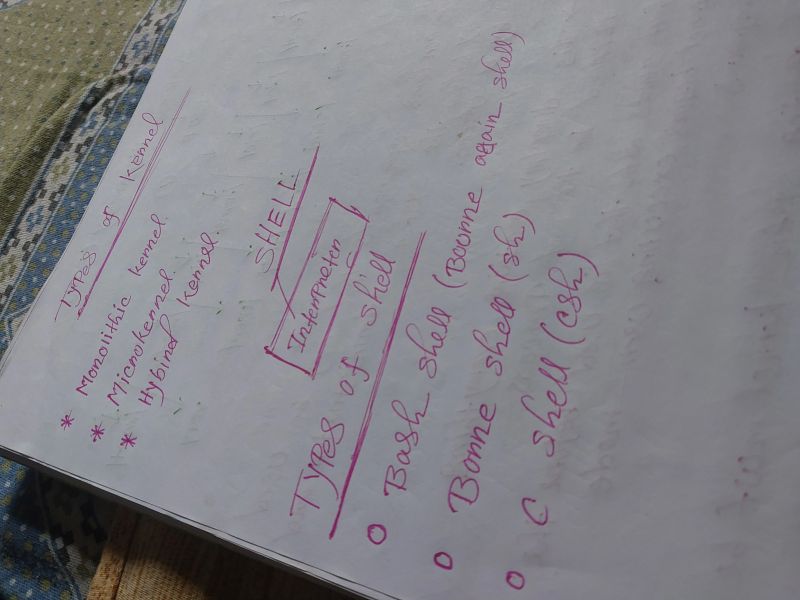 Types of Kernel
* Monolithic kernel
* Microkernel
* Hybird kernel
SHELL
Interpreter
Types of shell
o Bash shell (Bourne again shell)
o Borne shell (sh)
o C shell (csh)